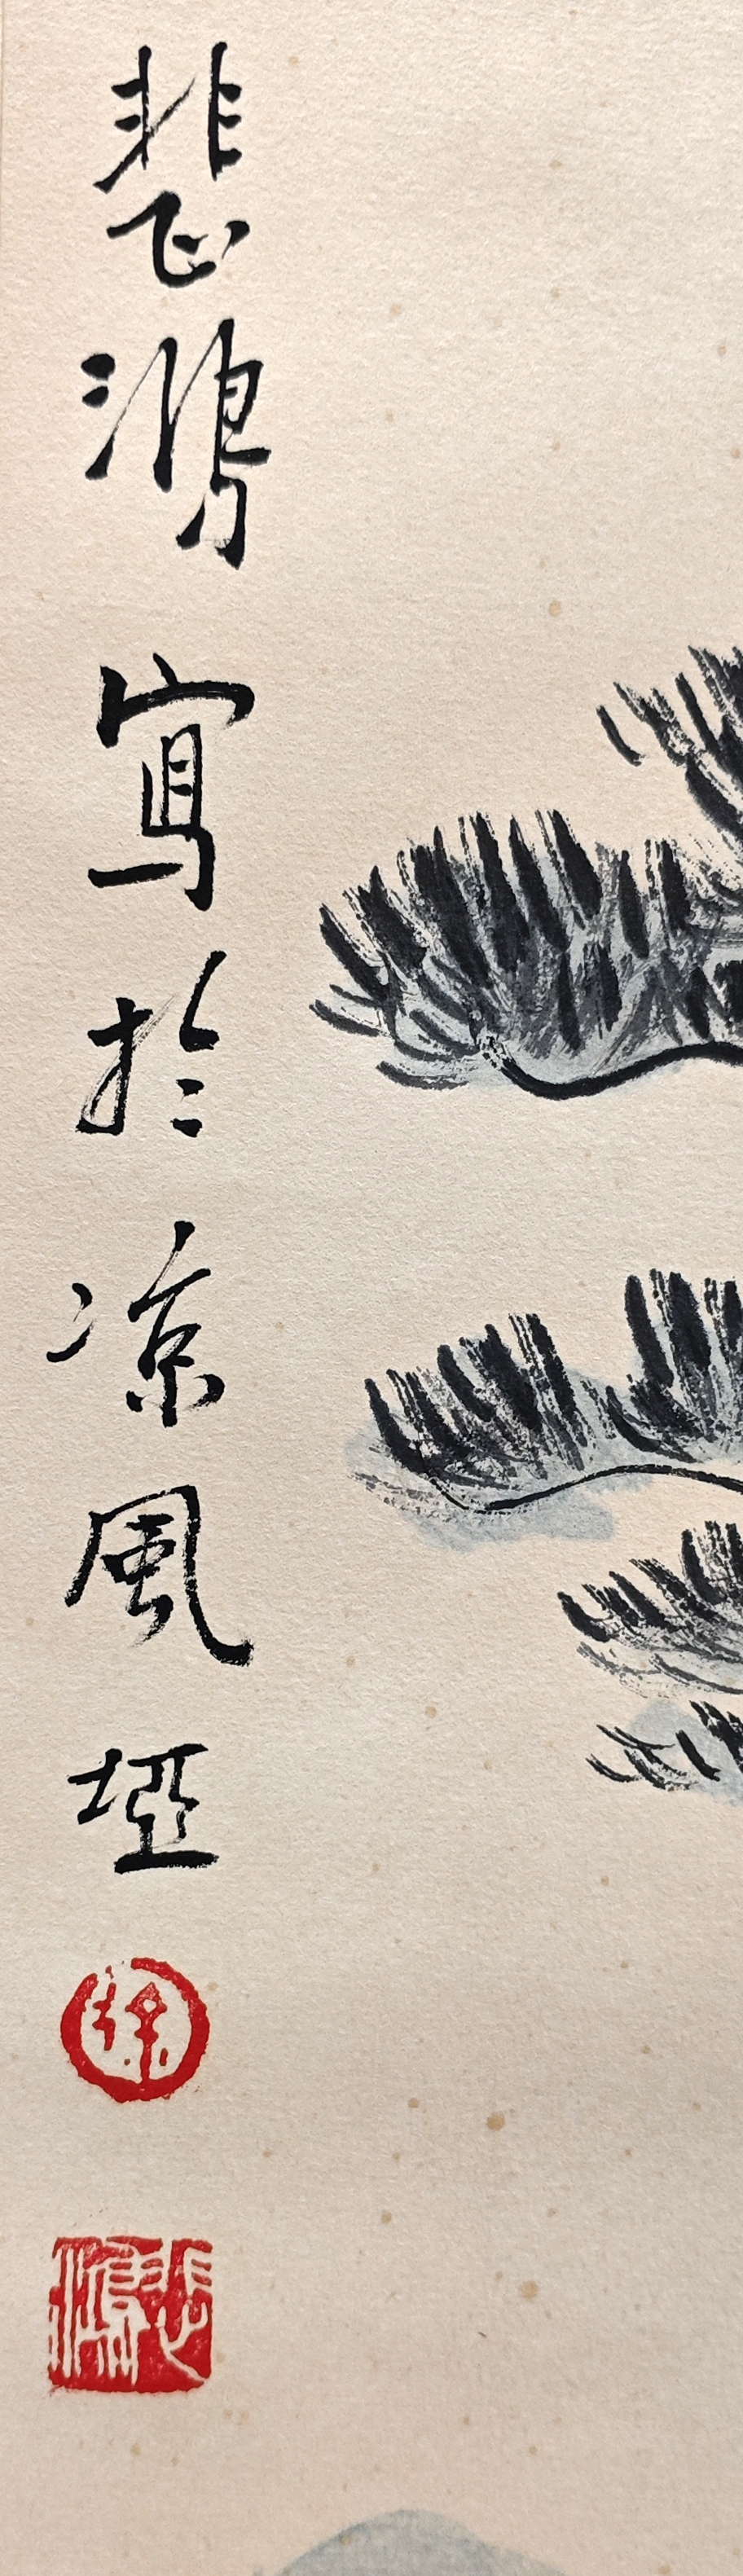 悲鴻寫於凉風埡
徐
悲鴻